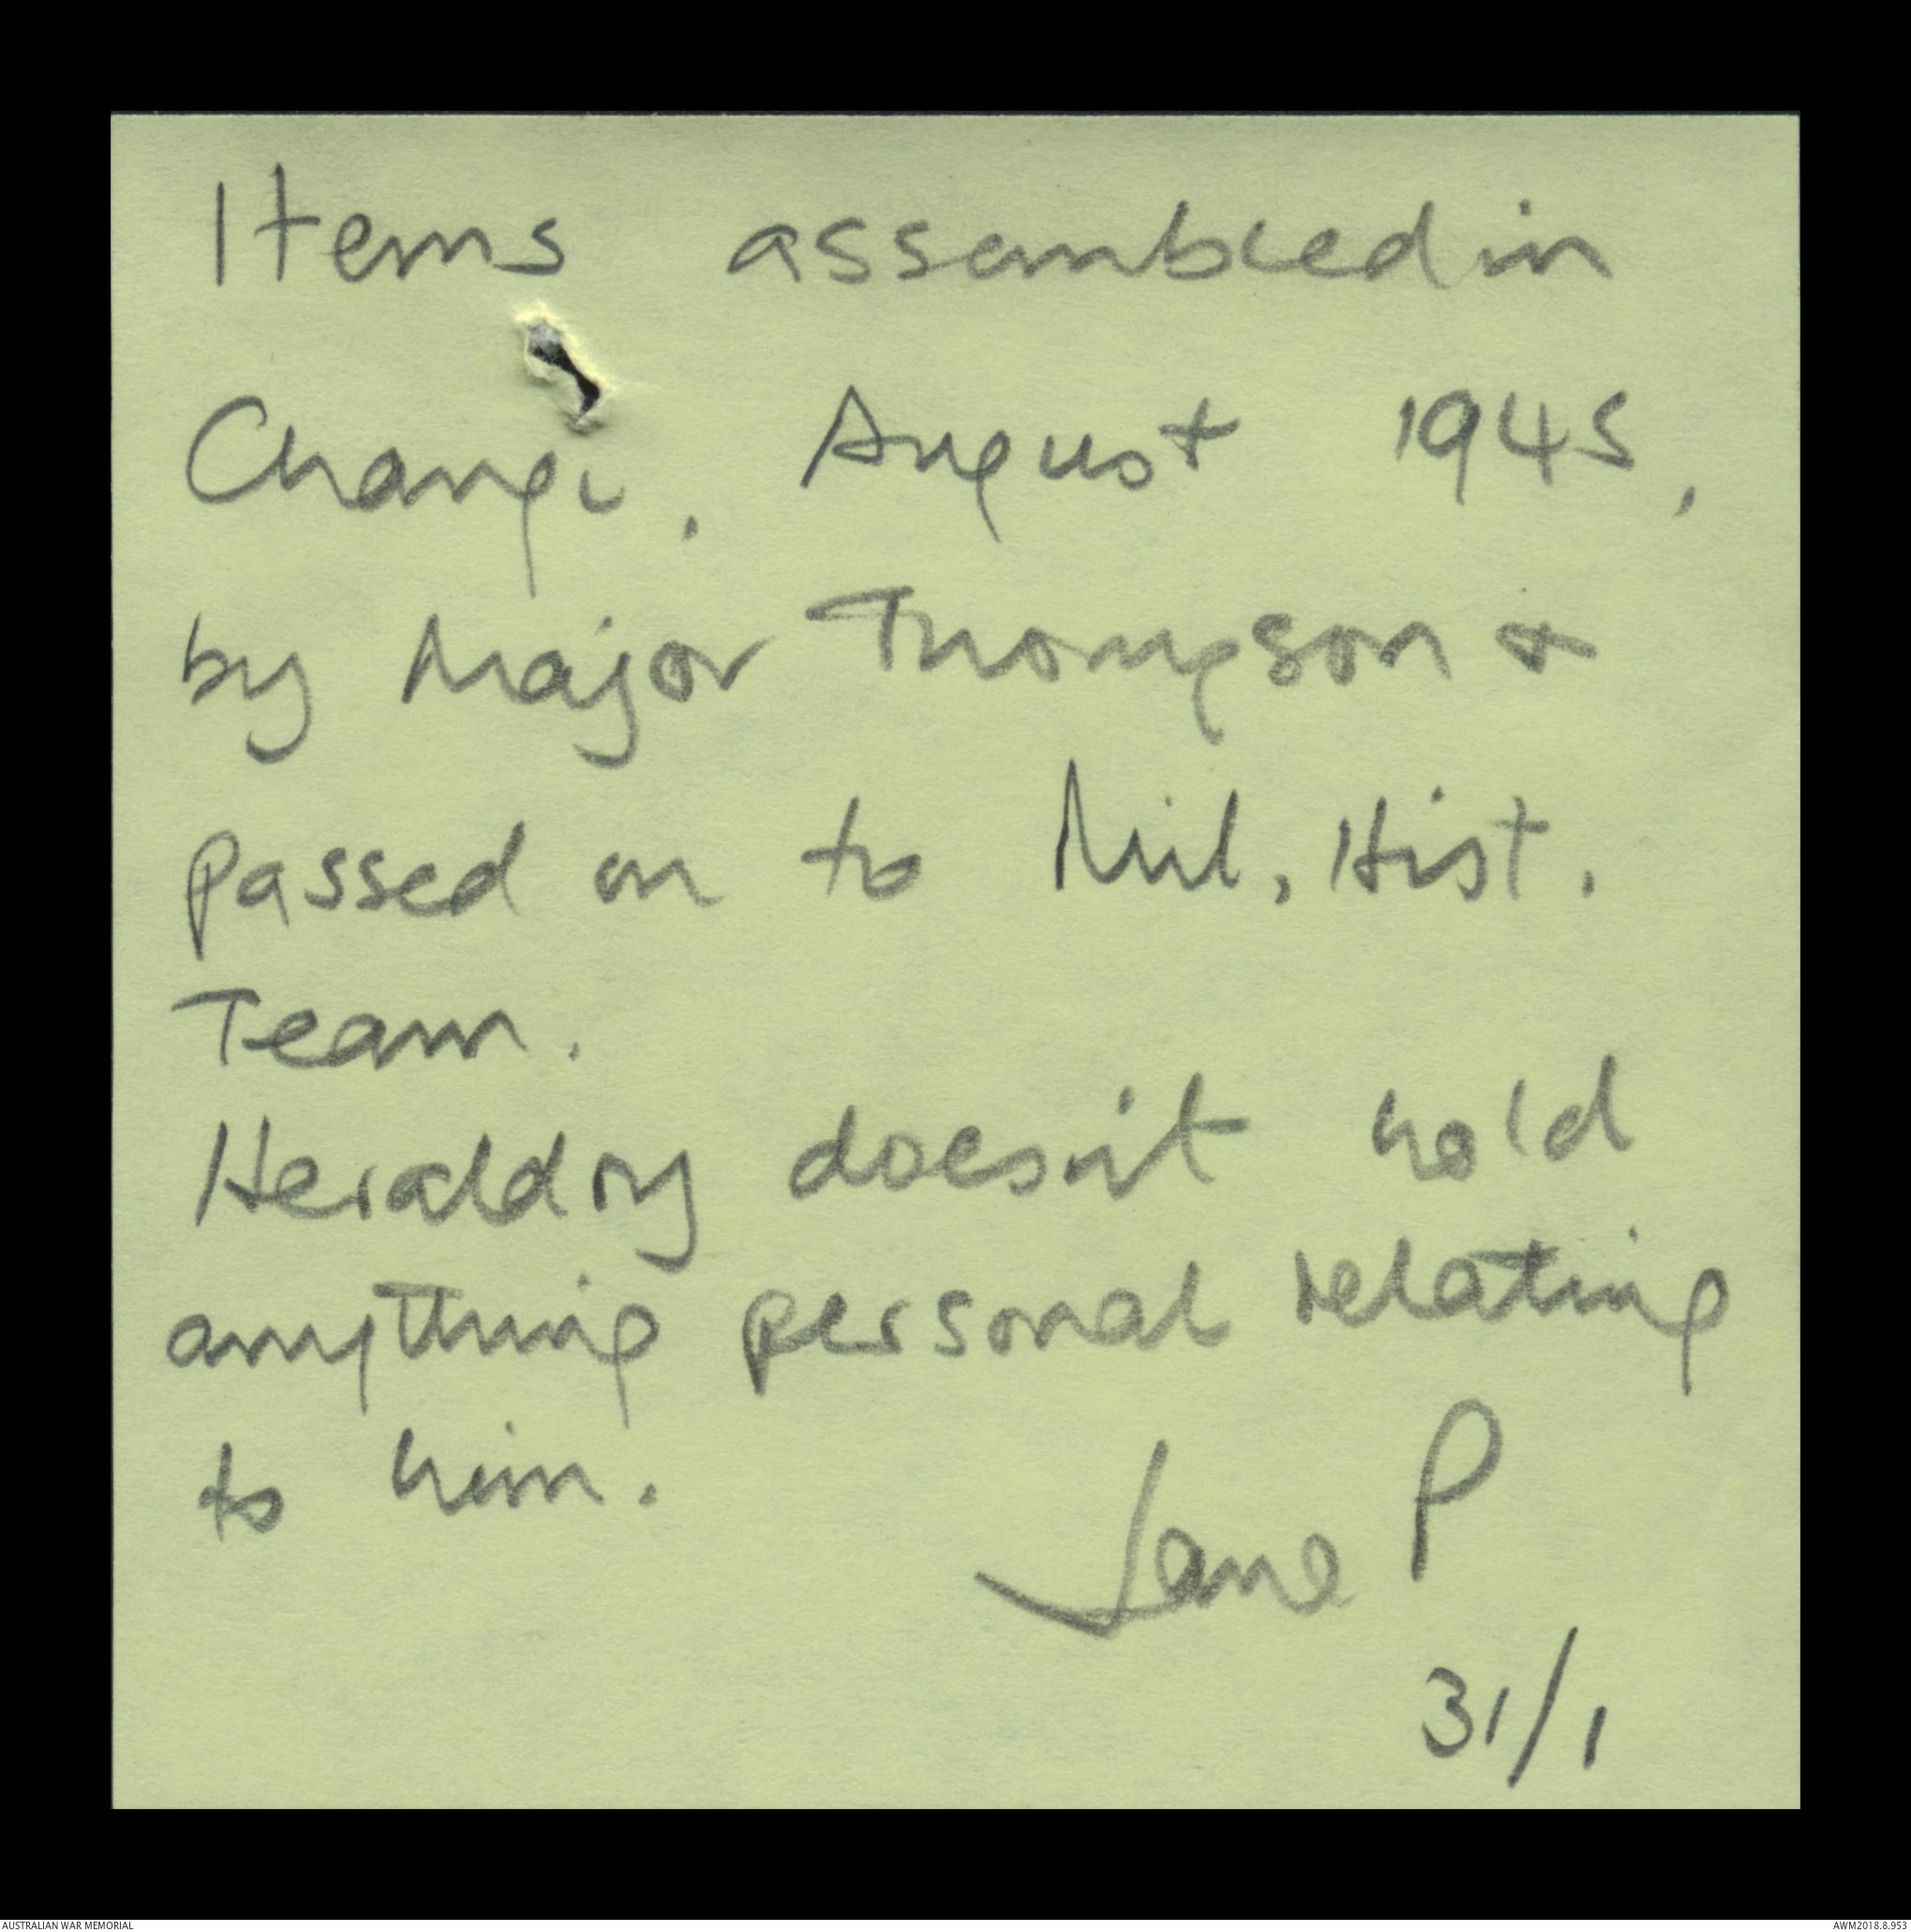 Items assembled in
Changi, August 1945,
by Major Thompson &
passed on to Mil. Hist.
Team.
Heraldry doesn't hold
anything personal relating
to him.
Jane P
31/1
AUSTRALIAN WAR MEMORIAL
AWM2018.8.953